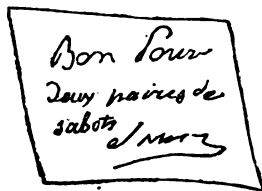 Bon Pour
deux paires de
sabots